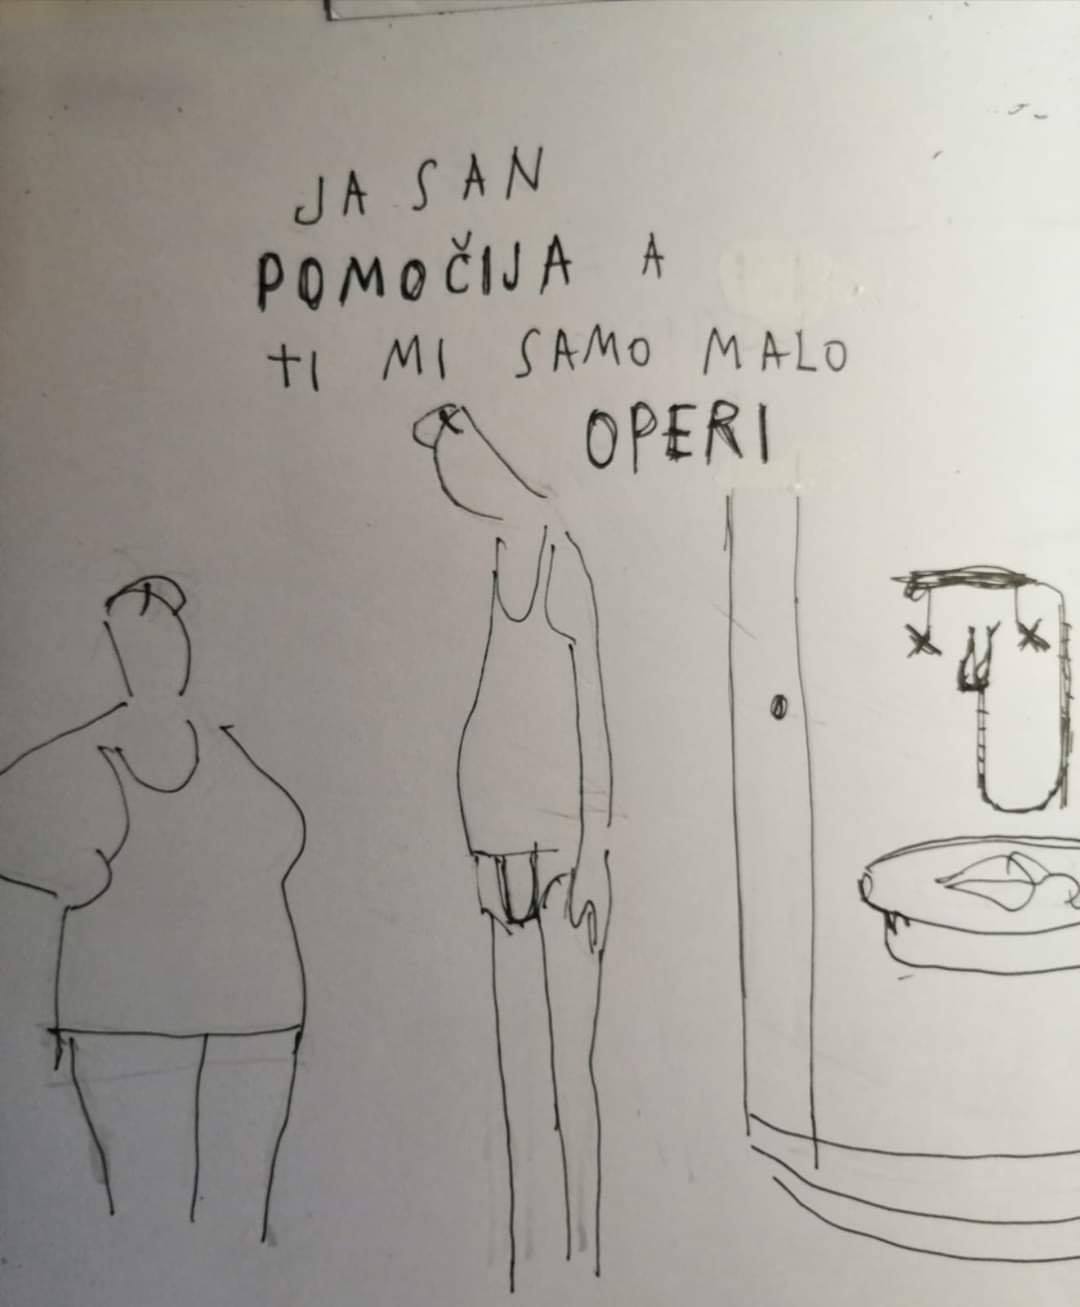 JA SAN
POMOČIJA A
TI MI SAMO MALO
OPERI